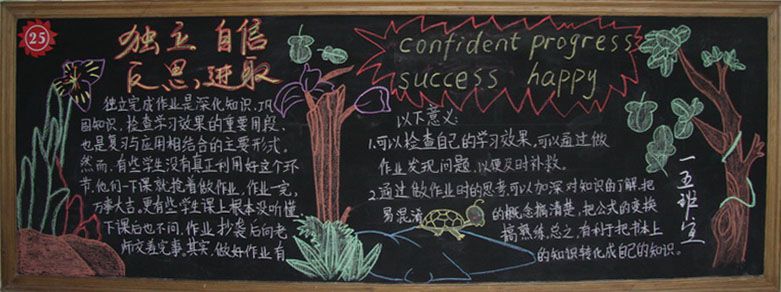 25
独立 自信
反思、进取
独立完成作业是深化知识、巩
固知识,检查学习效果的重要用段、
也是复习与应用相结合的主要形式。
然而,有些学生没有真正利用好这个环
节,他们一下课就抢着做作业,作业一完,
万事大吉。更有些学生课上根本没听懂
下课后也不问,作业抄袭后向老
师交差完事。其实,做好作业有
confident progress
success happy
以下意义:
1.可以检查自己的学习效果,可以通过做
作业发现问题,以便及时补救。
2.通过做作业时的思考可以加深对知识的了解,把
易混淆的概念搞清楚,把公式的变换
搞熟练,总之,有利于把书本上
的知识转化成自己的知识。
一五班宣